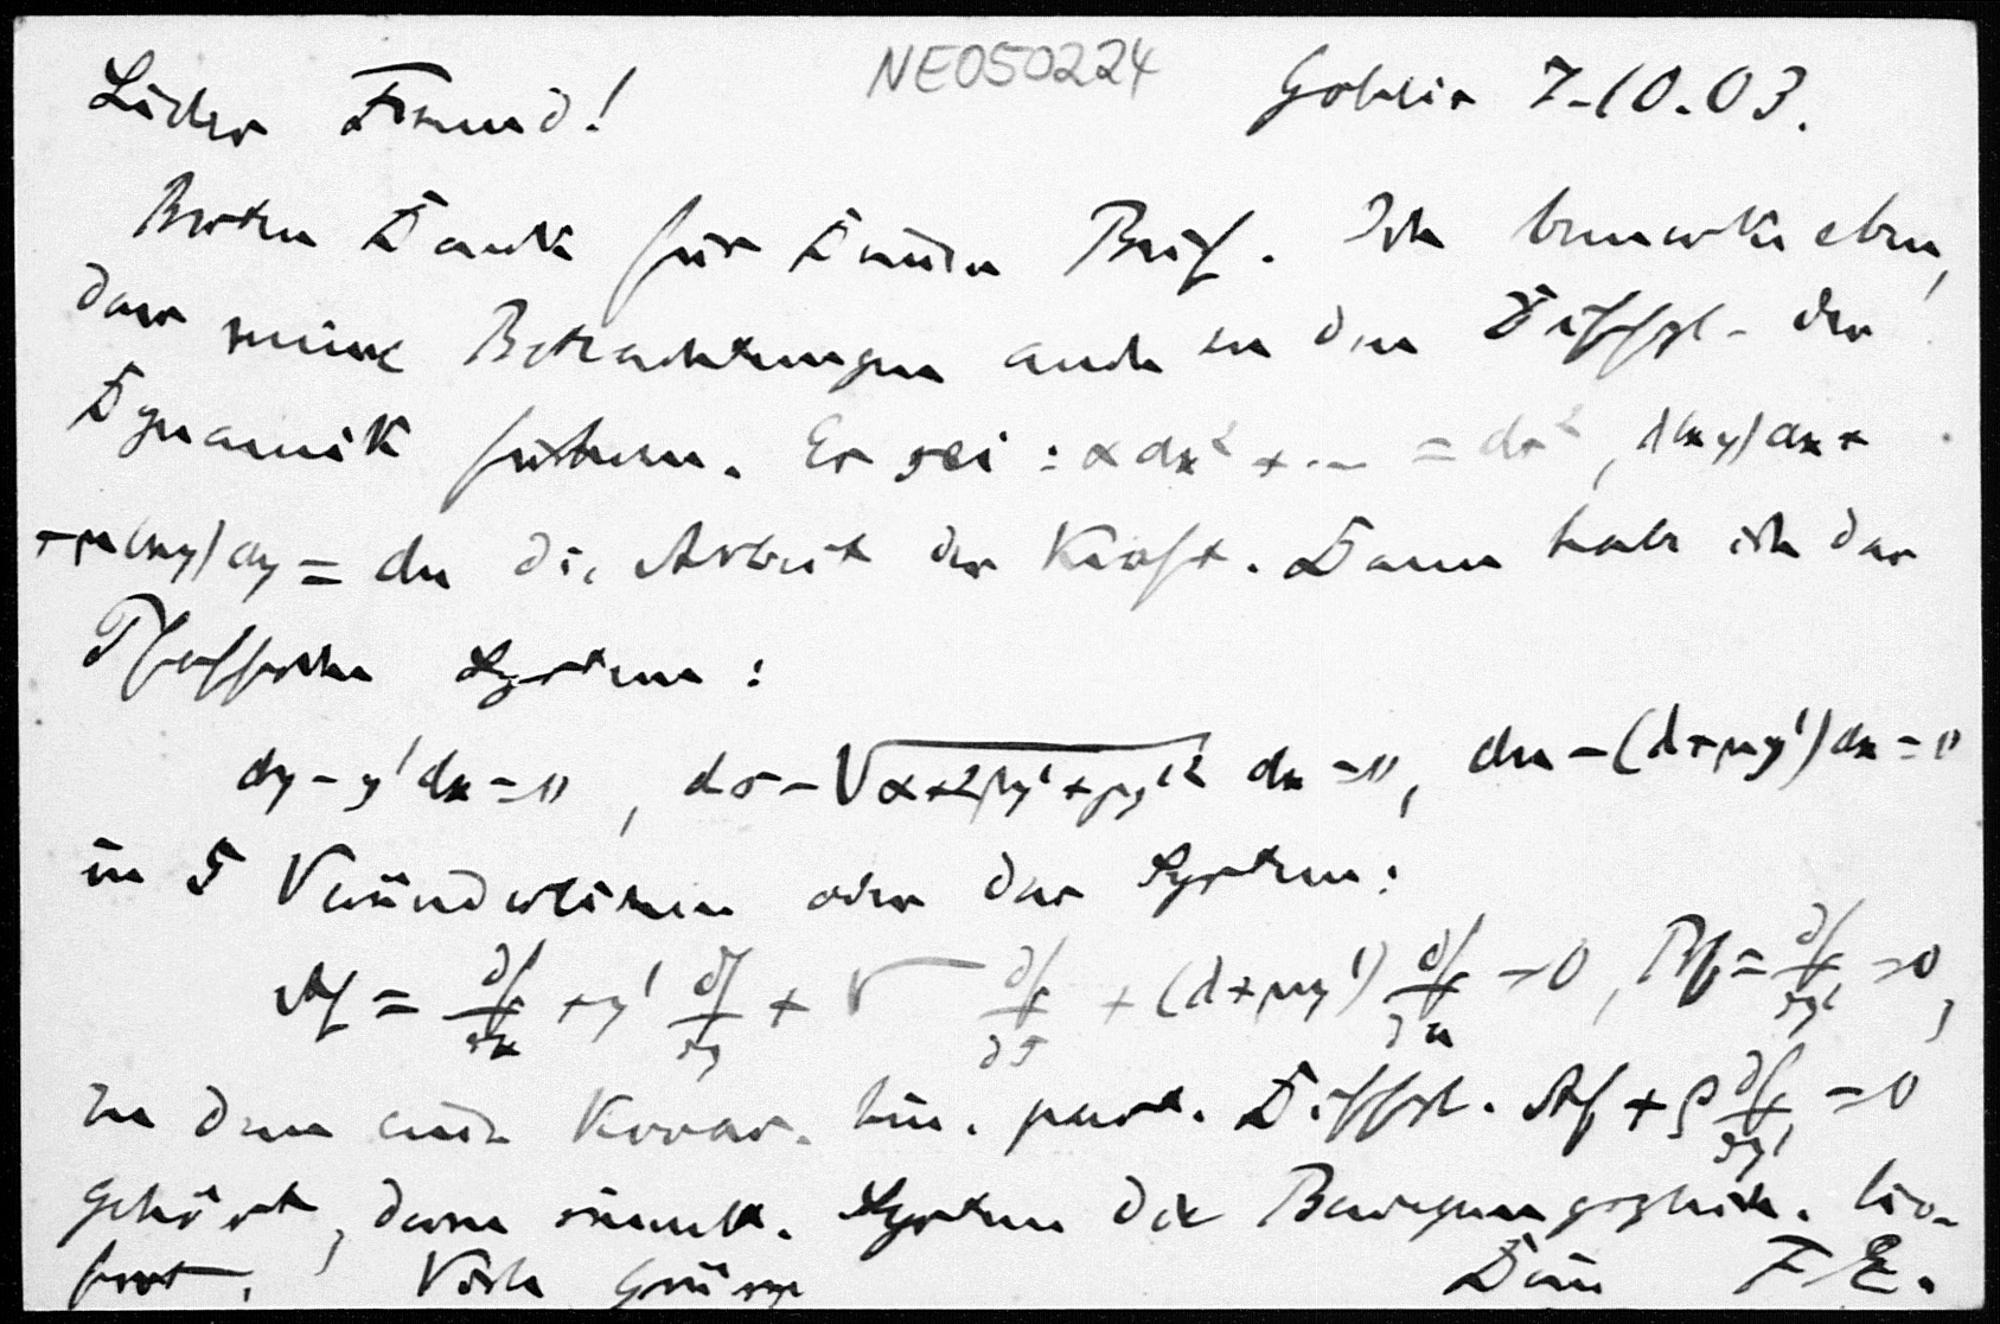 NE050224
Lieber Freund! Gohlis 7-10.03.
Besten Dank für Deinen Brief. Ich bemerke eben,
dass meine Betrachtungen auch zu den Diffgl. der
Dynamik führen. Es sei: αdx² + ... = ds², λ(xy)dx +
+μ(xy)dy = du die Arbeit der Kraft. Dann habe ich das
Pfaffsche System:
dy - y'dx = 0, ds - √α+2βy'+γy'² dx = 0, du - (λ+μy')dx = 0
in 5 Veränderlichen oder das System:
Af = ∂f/∂x + y' ∂f/∂y + √ ∂f/∂s + (λ+μy') ∂f/∂u = 0, Bf = ∂f/∂y' = 0,
zu dem eine kovar. lin. part. Diffgl. Af + ρ ∂f/∂y' = 0
gehört, deren simult. System die Bewegungsgleich. lie-
fert. Viele Grüsse Dein F E.